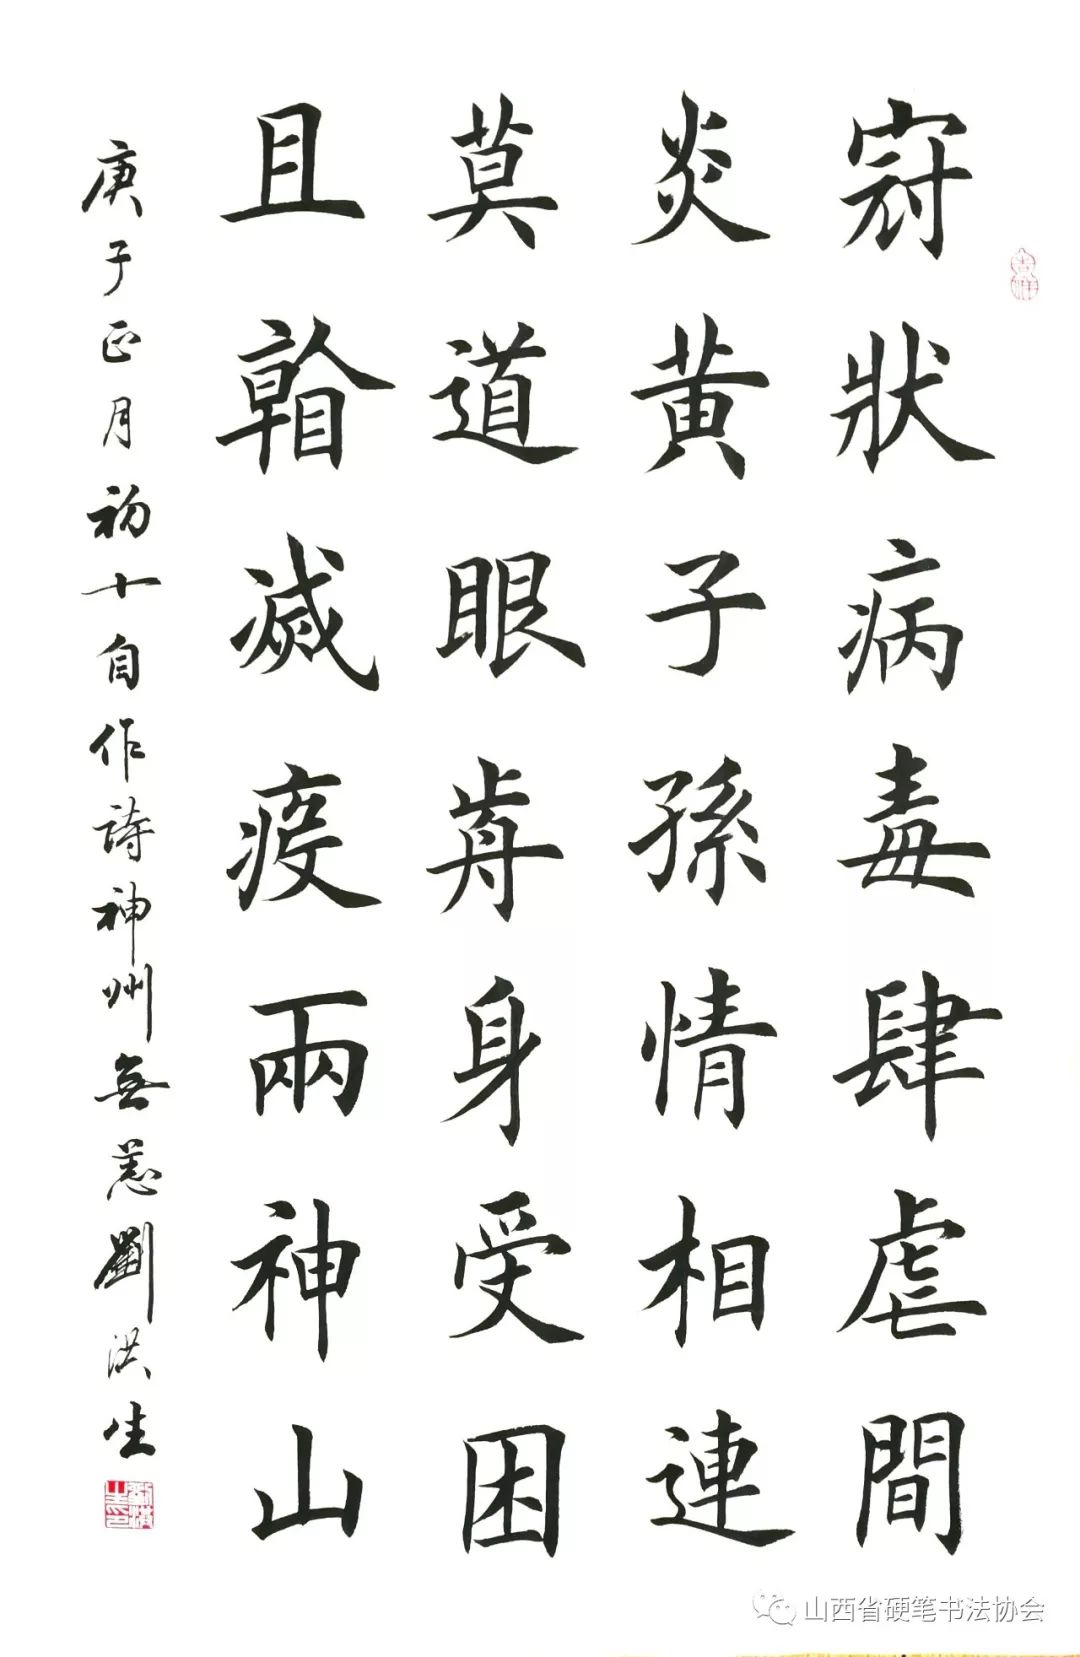 冠狀病毒肆虐間
炎黄子孫情相連
莫道眼前身受困
且看滅疫兩神山
庚子正月初十自作詩神州無恙劉洪生
吉祥
劉洪生印
山西省硬笔书法协会